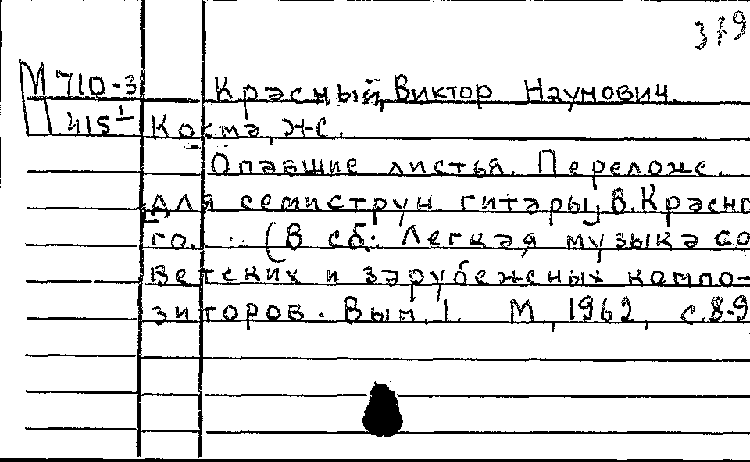 379
М 710-3 Красный, Виктор Наумович.
415 1 Косма, Ж-С.
Опавшие листья. Переложе.
для семиструн. гитары В. Красно
го. (В сб.: Легкая музыка со
ветских и зарубежных компо-
зиторов. Вып. 1. М, 1962, с. 8-9